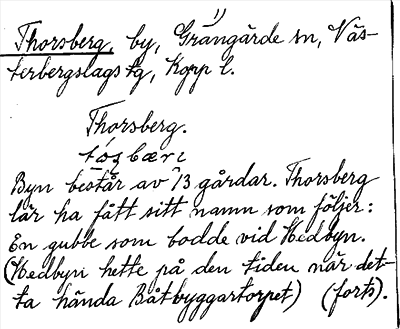 Thorsberg, by, Grangärde sn, Väs-
terbergslags tg, Kopp l.
Thorsberg.
Byn består av 13 gårdar. Thorsberg
lär ha fått sitt namn som följer:
En gubbe som bodde vid Hedbyn.
(Hedbyn hette på den tiden när det-
ta hända Båtbyggartorpet) (forts).